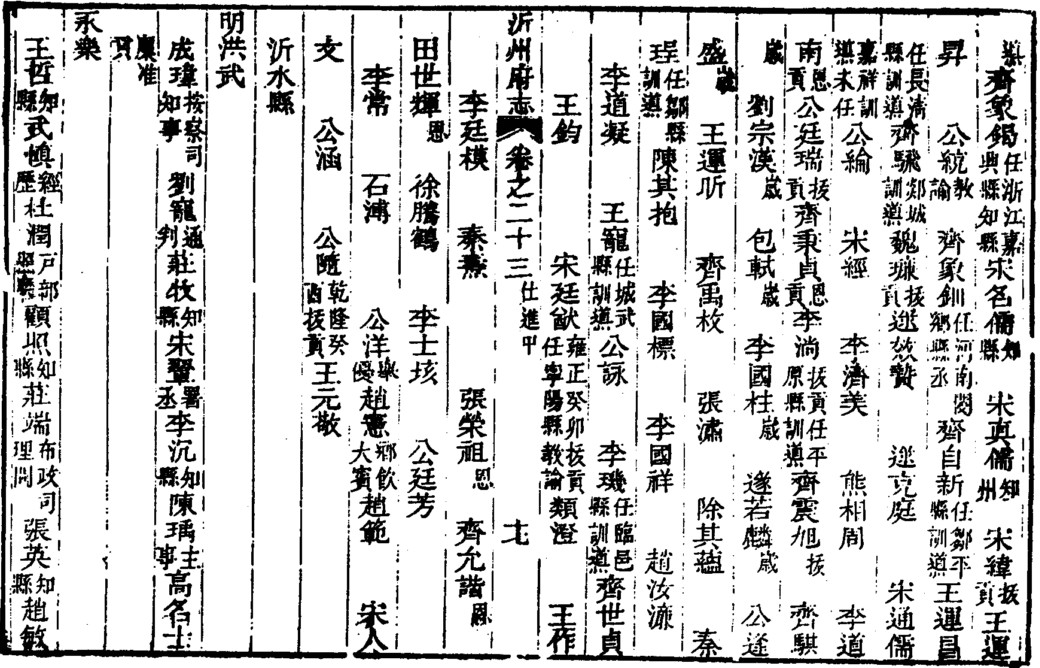 導 齊象錫任浙江嘉興縣知縣 宋名儒知縣 宋真儒知州 宋緯拔貢 王運
昇 公統教諭 齊象釧任河南閿鄉縣丞 齊自新任鄒平縣訓導 王運昌
任長清縣訓導 齊飛郯城訓導 魏璩拔貢 逯贊 逯克庭 宋通儒
嘉祥訓導未任 公綸 宋經 李濟美 熊相周 李道
南恩貢 公廷瑞拔貢 齊秉貞恩貢 李淌拔貢任平原縣訓導 齊震旭拔 齊騏
歲 劉宗漢歲 包軾歲 李國柱歲 逯若麟歲 公逢
盛歲 王運昕 齊禹枚 張潚 除其蘊 秦
珵任鄒縣訓導 陳其抱 李國標 李國祥 趙汝濂
李道凝 王寵任城武縣訓導 公詠 李璣任臨邑縣訓導 齊世貞
王鈞 宋廷猷雍正癸卯拔貢任寧陽縣教諭 類澄 王作
沂州府志 卷之二十三 仕進甲 十七
李廷模 秦燾 張榮祖恩 齊允諧恩
田世輝恩 徐騰鶴 李士垓 公廷芳
李常 石溥 公洋舉優 趙憲鄉飲大賓 趙範 宋人
文 公涵 公隨乾隆癸酉拔貢 王元敬
沂水縣
明洪武
成瑋按察司知事 劉寵通判 莊牧知縣 宋翬署丞 李沉知縣 陳瑀主事 高名士
廩准貢
永樂
王哲知縣 武慎經歷 杜潤戶部 顧照知縣 莊端布政司理問 張英知縣 趙敏